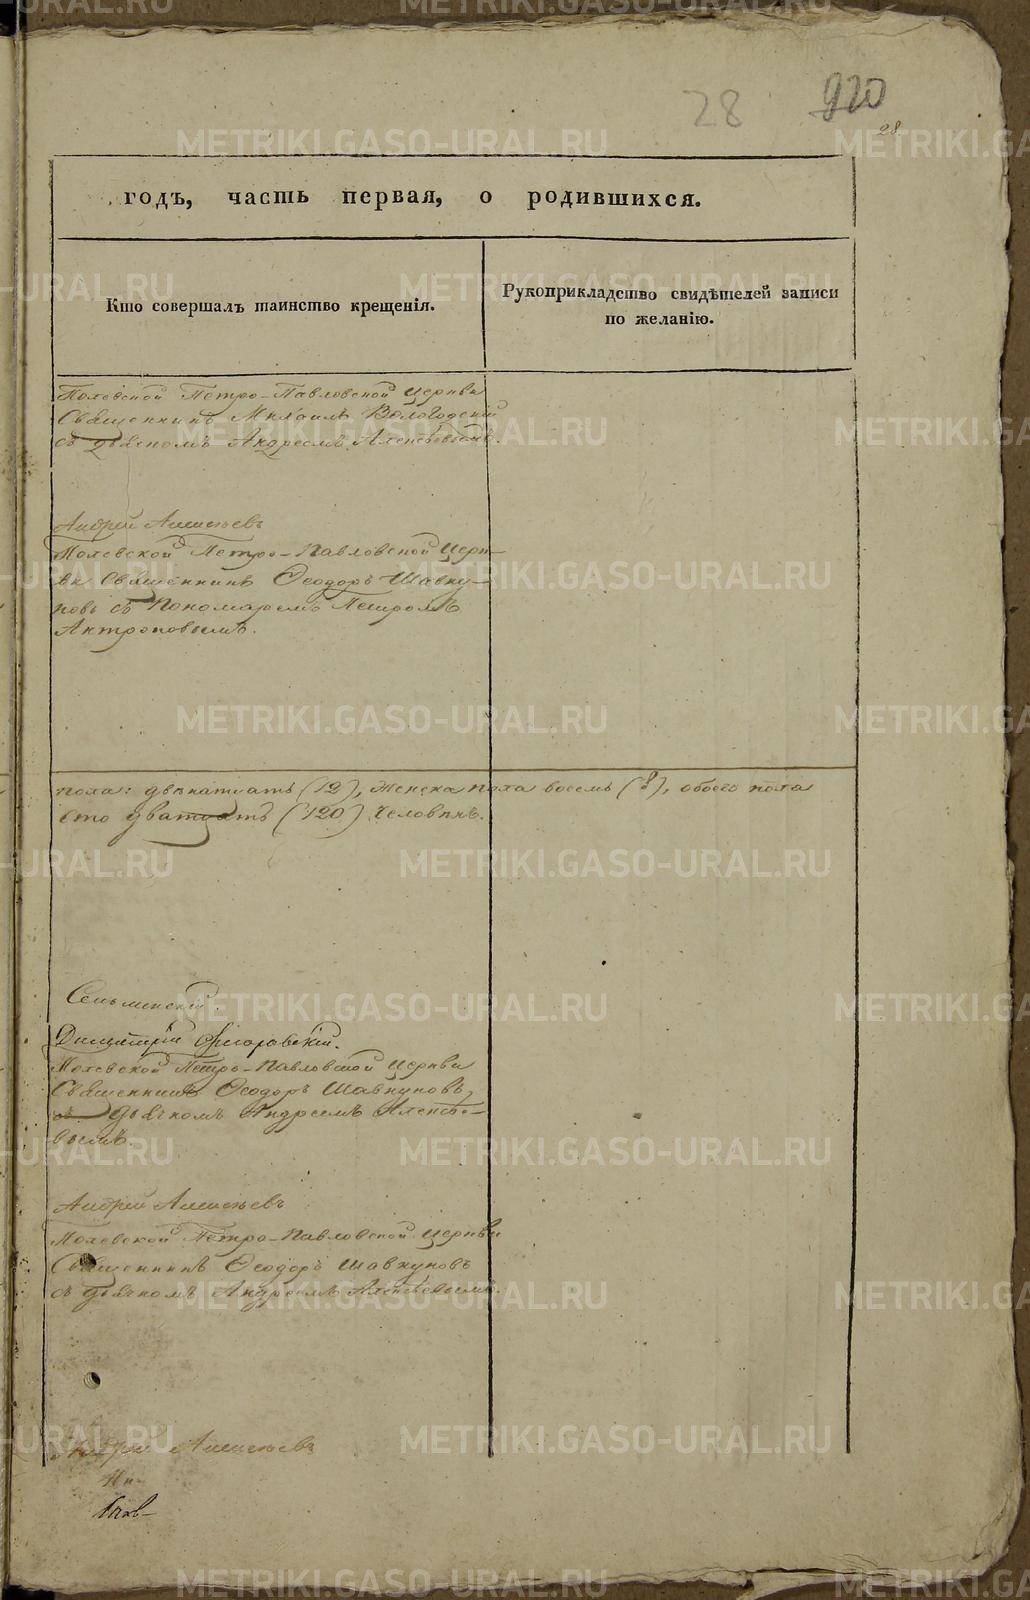 28 920
28
годъ, часть первая, о родившихся.
Кто совершалъ таинство крещенія.
Рукоприкладство свидѣтелей записи
по желанію.
Полевской Петро-Павловской Церкви
Священникъ Михаилъ Вологодскій
съ дьячкомъ Андреемъ Алексѣевымъ.
Андрей Алексѣевъ
Полевской Петро-Павловской Церк-
ви Священникъ Ѳеодоръ Шавку-
новъ съ Пономаремъ Петромъ
Антроповымъ.
пола: двенатцать (12), женска пола восемь (8), обоего пола
сто дватцать (120) Человѣкъ.
Димитрій
Полевской Петро-Павловской Церкви
Священникъ Ѳеодоръ Шавкуновъ,
съ дьячкомъ Андреемъ Алексѣе-
вымъ.
Андрей Алексѣевъ
Полевской Петро-Павловской Церкви
Священникъ Ѳеодоръ Шавкуновъ
съ дьячкомъ Андреемъ Алексѣевымъ.
Андрей Алексѣевъ
METRIKI.GASO-URAL.RU